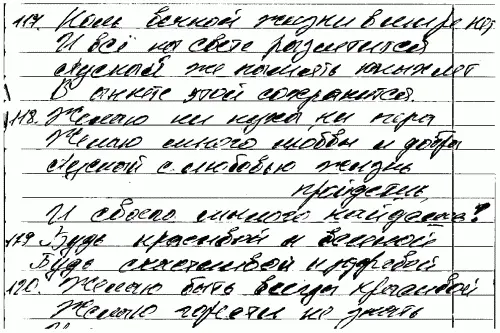 117. Коль вечной жизни в мире нет
И всё на свете разлетится
Пускай же память юных лет
В анкете этой сохранится.
118. Желаю ни пуха, ни пера
Желаю много любви и добра
Пускай с любовью жизнь
пройдешь,
И своего милого найдешь!
119 Будь красивой и веселой
Будь счастливой и здоровой
120. Желаю быть всегда красивой
Желаю горести не знать